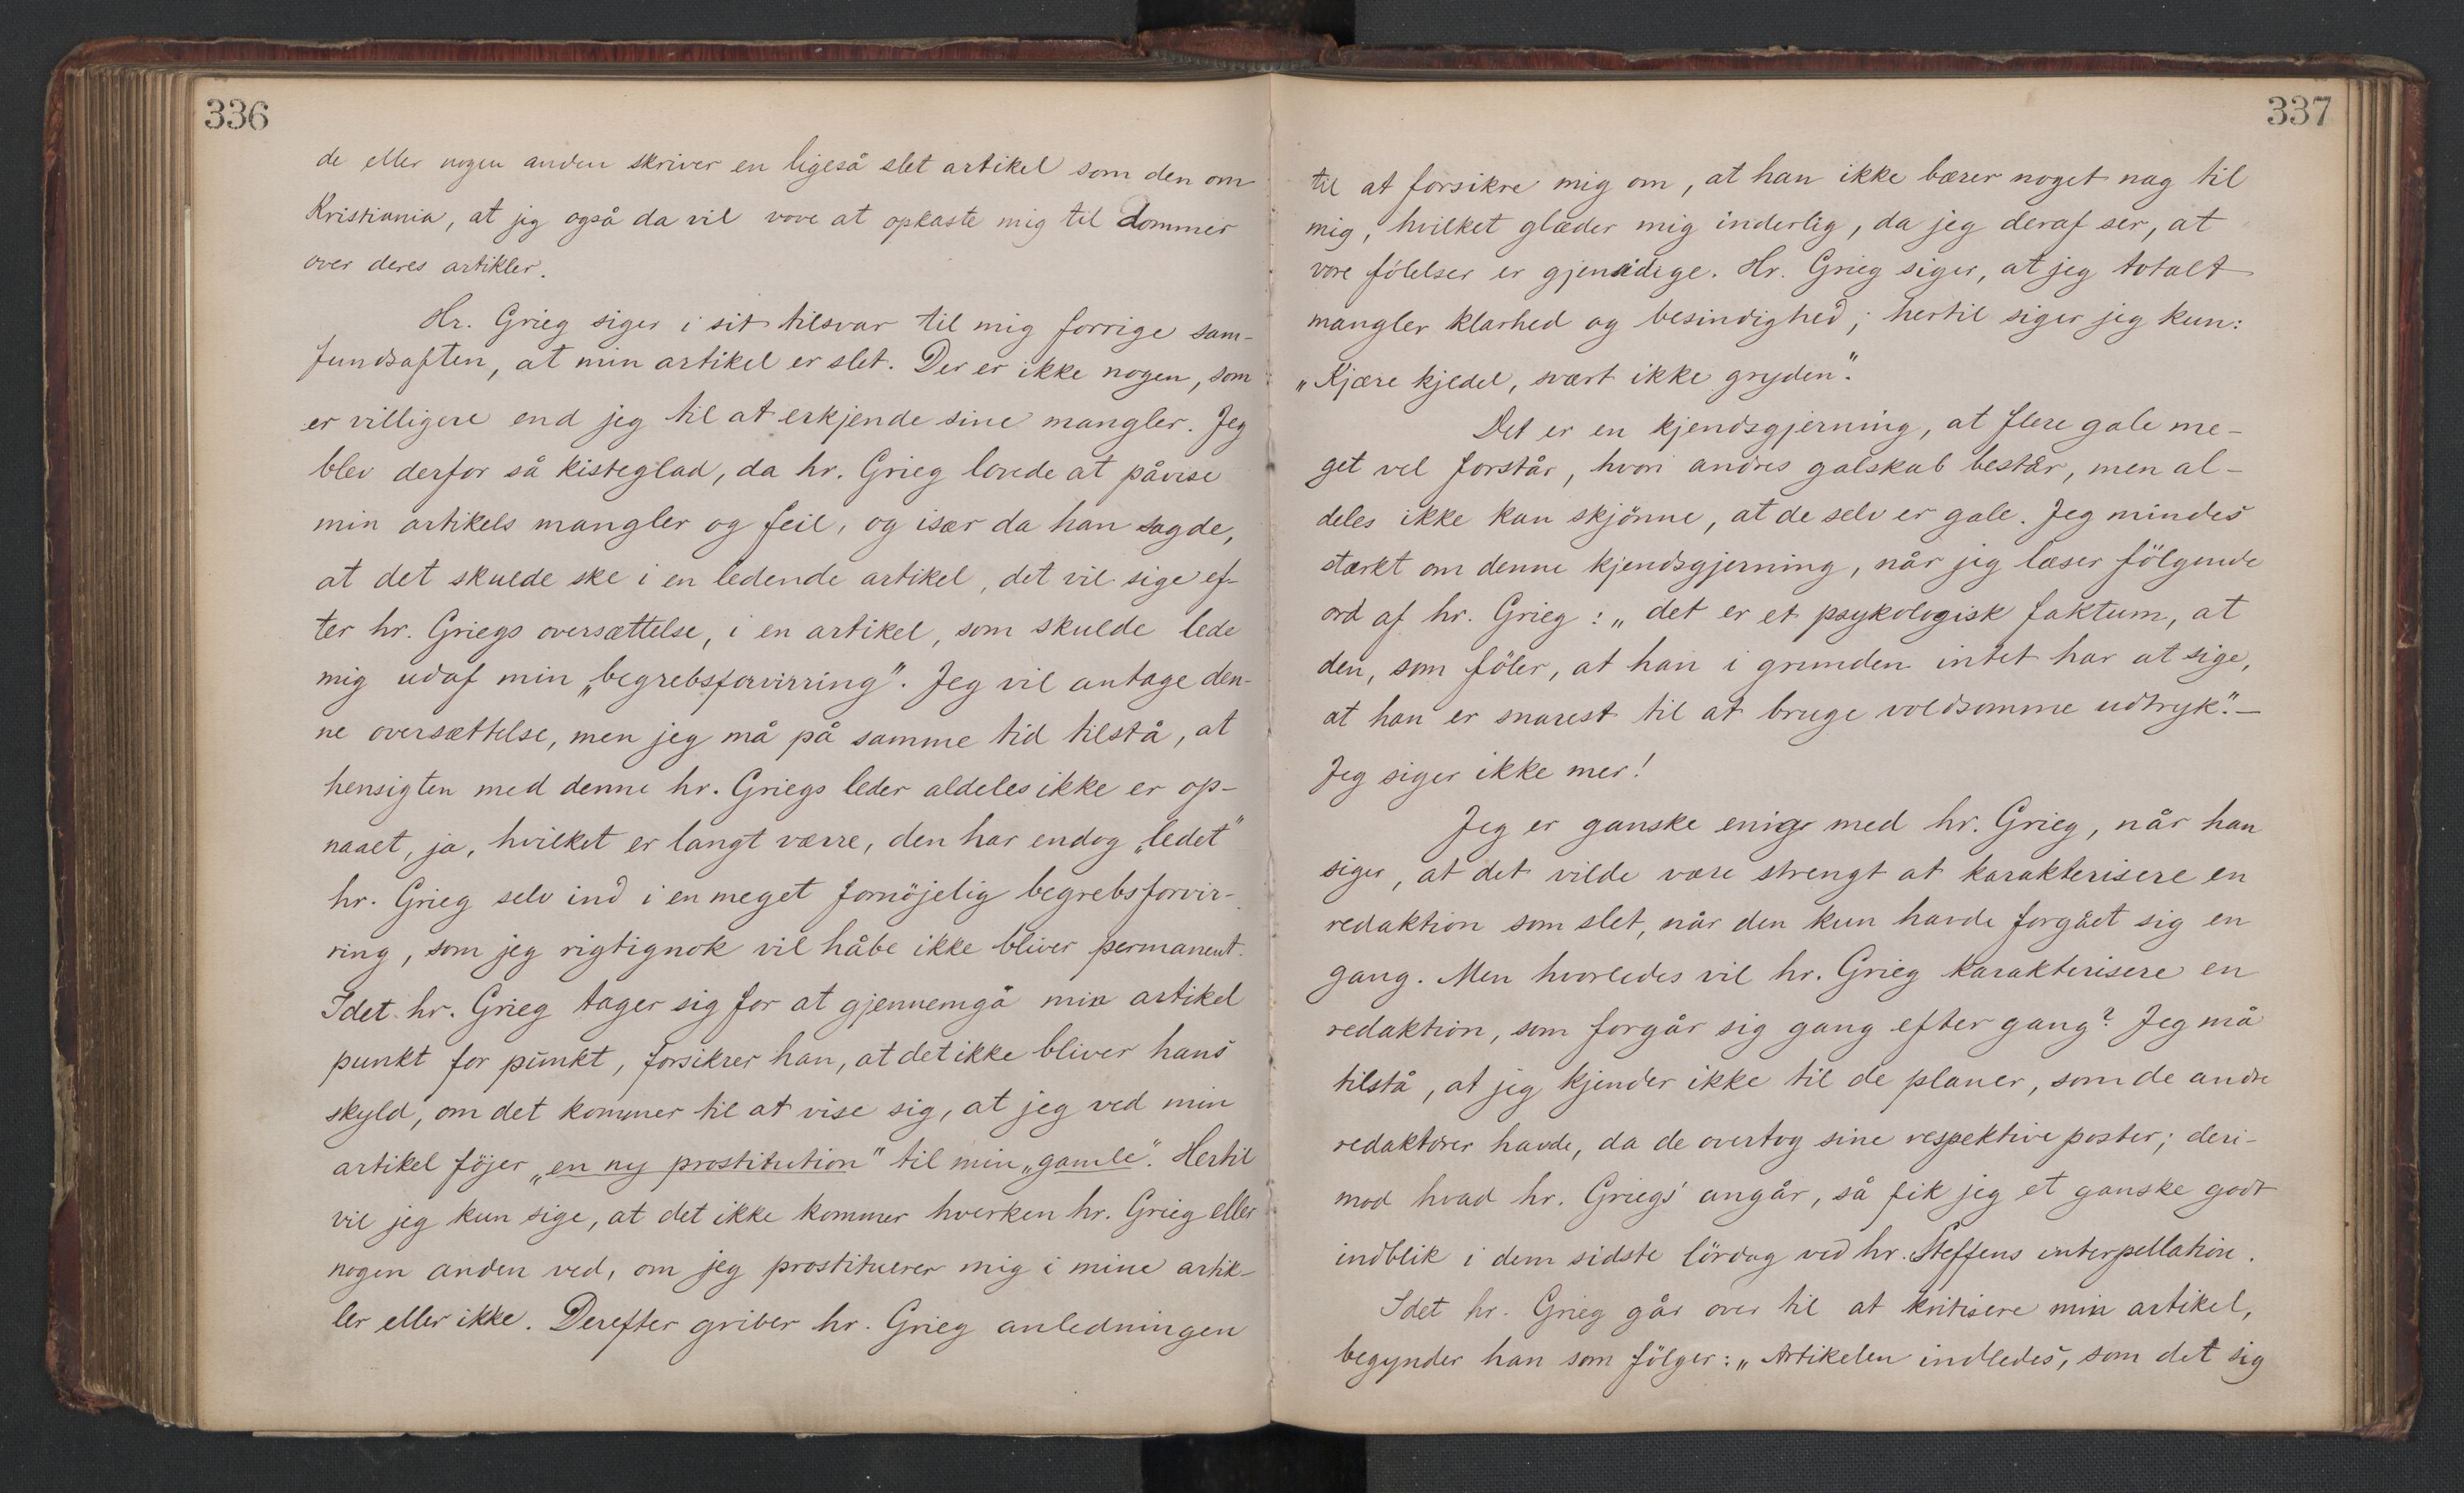 336
de eller nogen anden skriver en ligeså slet artikel som den om
Kristiania, at jeg også da vil vove at opkaste mig til dommer
over deres artikler.
Hr. Grieg siger i sit tilsvar til mig forrige sam-
fundsaften, at min artikel er slet. Der er ikke nogen, som
er villigere end jeg til at erkjende sine mangler. Jeg
blev derfor så kisteglad, da hr. Grieg lovede at påvise
min artikels mangler og feil, og især da han sagde,
at det skulde ske i en ledende artikel, det vil sige ef-
ter hr. Griegs oversættelse, i en artikel, som skulde lede
mig udaf min „begrebsforvirring". Jeg vil antage den-
ne oversættelse, men jeg må på samme tid tilstå, at
hensigten med denne hr. Griegs leder aldeles ikke er op-
naaet, ja, hvilket er langt værre, den har endog „ledet"
hr. Grieg selv ind i en meget fornöjelig begrebsforvir-
ring, som jeg rigtignok vil håbe ikke bliver permanent.
Idet hr. Grieg tager sig for at gjennemgå min artikel
punkt for punkt, forsikrer han, at det ikke bliver hans
skyld, om det kommer til at vise sig, at jeg ved min
artikel föjer „en ny prostitution" til min „gamle". Hertil
vil jeg kun sige, at det ikke kommer hverken hr. Grieg eller
nogen anden ved, om jeg prostituerer mig i mine artik-
ler eller ikke. Derefter griber hr. Grieg anledningen
337
til at forsikre mig om, at han ikke bærer noget nag til
mig, hvilket glæder mig inderlig, da jeg deraf ser, at
vore fölelser er gjensidige. Hr. Grieg siger, at jeg totalt
mangler klarhed og besindighed; hertil siger jeg kun:
„Kjære kjedel, svært ikke gryden".
Det er en kjendsgjerning, at flere gale me-
get vel forstår, hvori andres galskab består, men al-
deles ikke kan skjönne, at de selv er gale. Jeg mindes
stærkt om denne kjendsgjerning, når jeg læser fölgende
ord af hr. Grieg: „det er et psykologisk faktum, at
den, som föler, at han i grunden intet har at sige,
at han er snarest til at bruge voldsomme udtryk". —
Jeg siger ikke mer!
Jeg er ganske enig med hr. Grieg, når han
siger, at det vilde være strengt at karakterisere en
redaktion som slet, når den kun havde forgået sig en
gang. Men hvorledes vil hr. Grieg karakterisere en
redaktion, som forgår sig gang efter gang? Jeg må
tilstå, at jeg kjender ikke til de planer, som de andre
redaktörer havde, da de overtog sine respektive poster; deri-
mod hvad hr. Griegs' angår, så fik jeg et ganske godt
indblik i dem sidste lördag ved hr. Steffens interpellation.
Idet hr. Grieg går over til at kritisere min artikel,
begynder han som fölger: „Artikelen indledes, som det sig